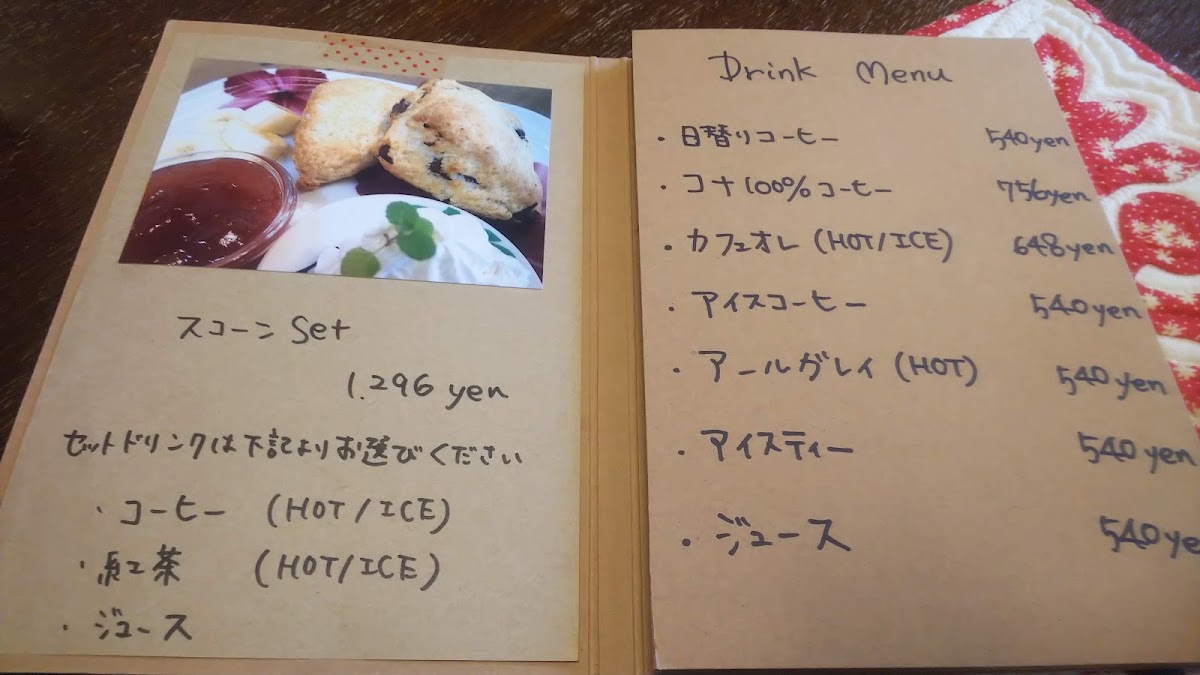 スコーン Set
1.296 yen
セットドリンクは下記よりお選びください
・コーヒー (HOT/ICE)
・紅茶 (HOT/ICE)
・ジュース
Drink Menu
・日替りコーヒー 540yen
・コナ100%コーヒー 756yen
・カフェオレ (HOT/ICE) 648yen
・アイスコーヒー 540yen
・アールグレイ (HOT) 540yen
・アイスティー 540yen
・ジュース 540ye